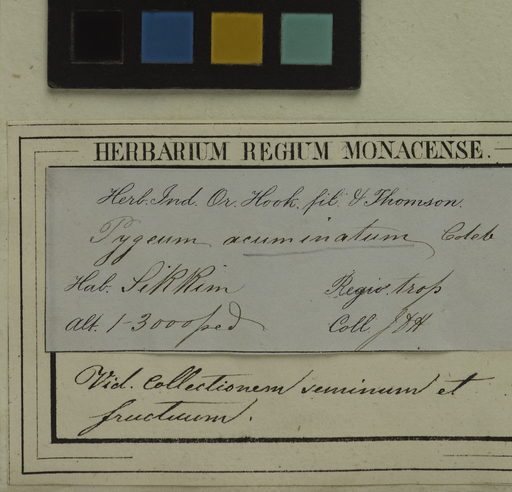 HERBARIUM REGIUM MONACENSE.
Herb. Ind. Or. Hook. fil. & Thomson.
Pygeum acuminatum Coleb
Hab. Sikkim Regio. trop
Alt. 1-3000 ped Coll J.D.H.
Vid. Collectionem seminum et
fructuum.